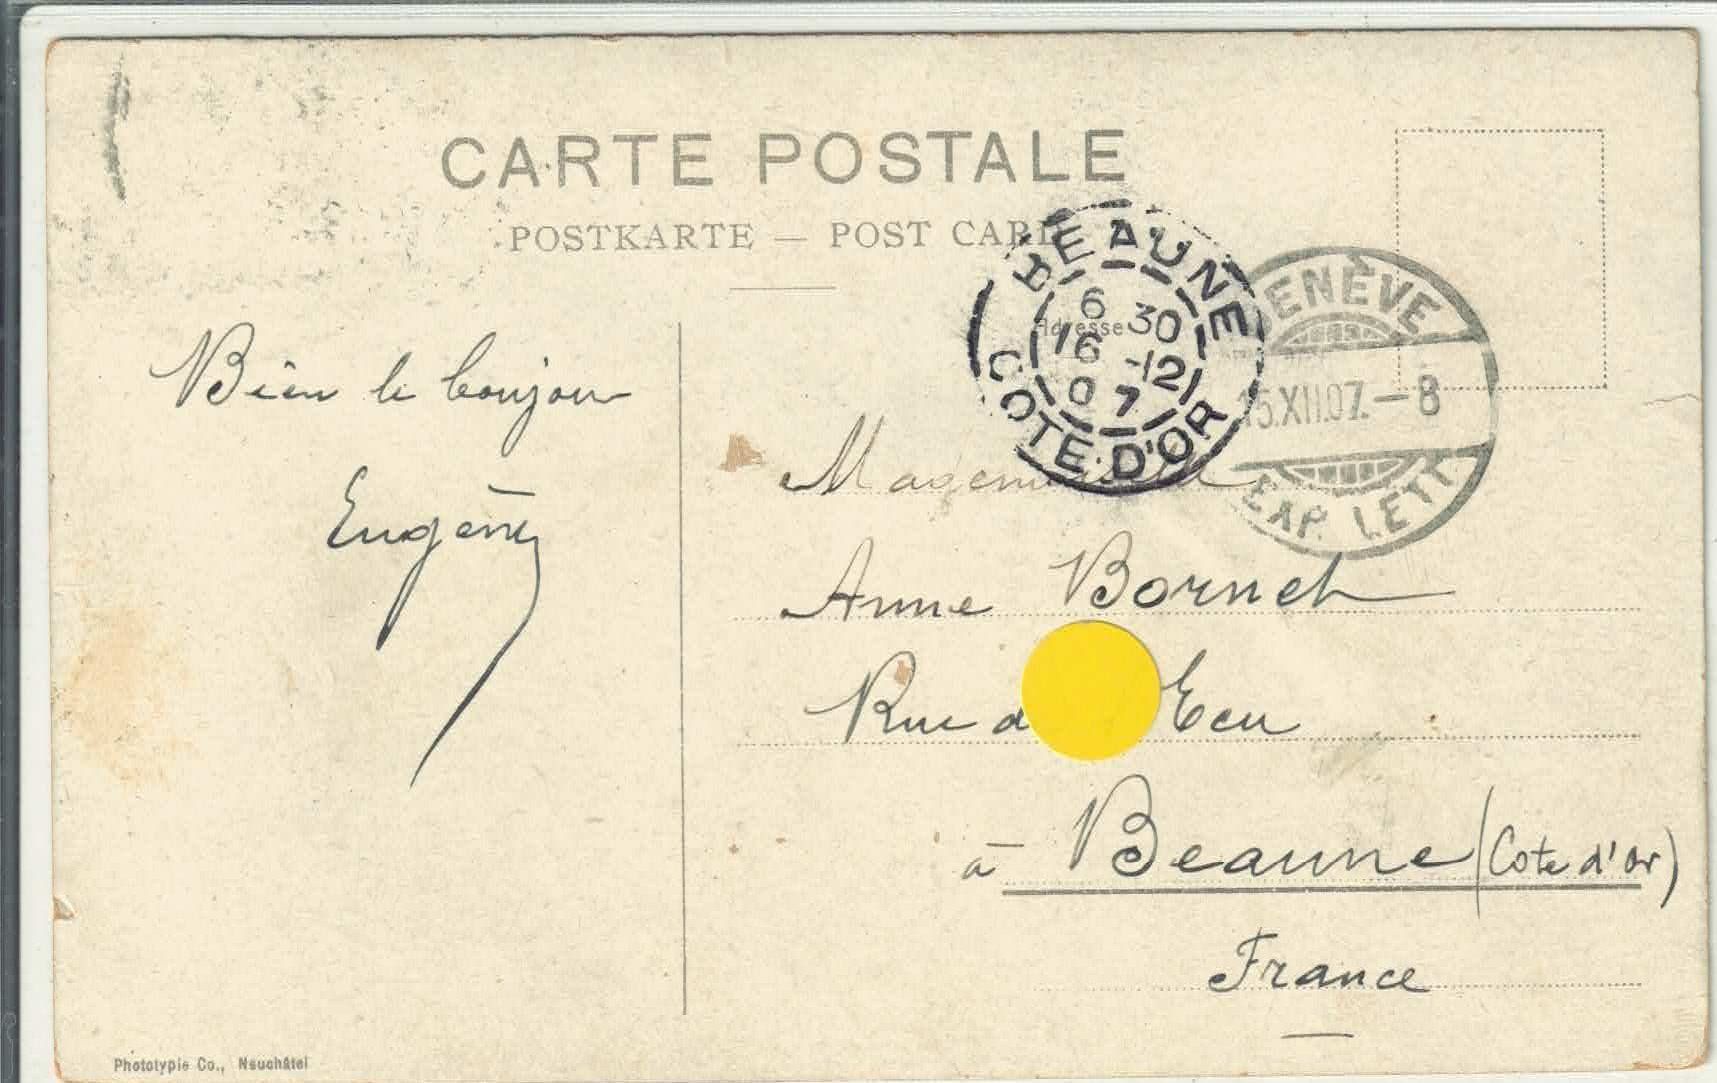 CARTE POSTALE
POSTKARTE — POST CARD
Adresse
BEAUNE
6 30
16 -12
07
COTE D'OR
GENÈVE
15.XII.07.–8
EXP. LETT.
Bien le bonjour
Eugène
Mademoiselle
Anne Bornet
Rue d Ecu
à Beaune (Cote d'or)
France
Phototypie Co., Neuchâtel